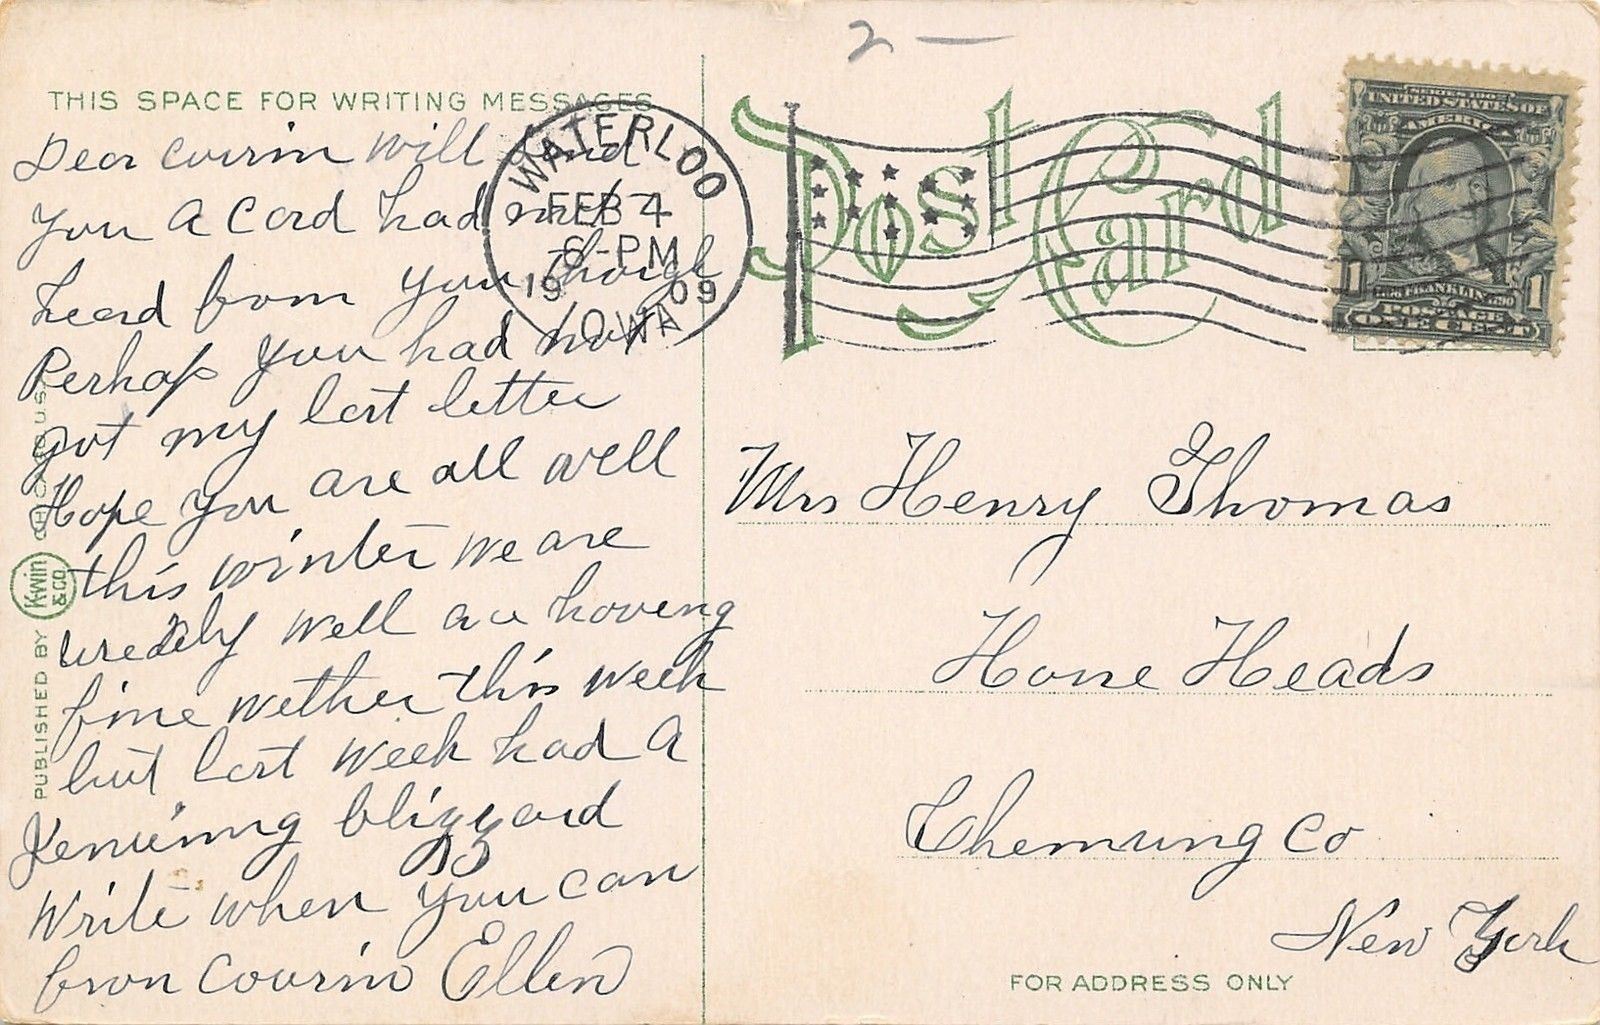 2 —
THIS SPACE FOR WRITING MESSAGES
Dear cousin will send
you a Card had not
heard from you though
Perhaps you had not
got my last letter
Hope you are all well
this winter we are
well are haveng
fine wether this week
but last week had a
blizzard
Write when you can
from cousin Ellen
PUBLISHED BY K-WIN & CO. CHICAGO U.S.
WATERLOO
FEB 4
6-PM
1909
IOWA
Post Card
SERIES 1902
UNITED STATES OF
AMERICA
1706 FRANKLIN 1790
1 POSTAGE 1
ONE CENT
Mrs Henry Thomas
Horse Heads
Chemung Co
New York
FOR ADDRESS ONLY